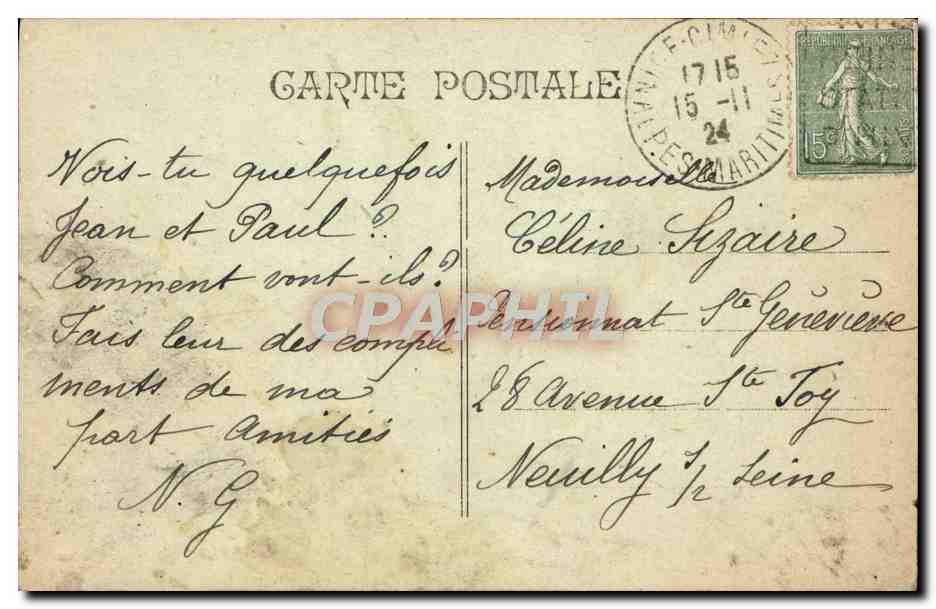 CARTE POSTALE
NICE-CIMIEZ
1715
15 -11
24
ALPES MARITIMES
REPUBLIQUE FRANÇAISE
15c
Vois-tu quelquefois
Jean et Paul ?
Comment vont-ils ?
Fais leur des compli
ments de ma
part Amitiés
N. G
Mademoiselle
Céline Sizaire
Pensionnat Ste Geneviève
28 Avenue Ste Foy
Neuilly s/ Seine
CPAPHIL